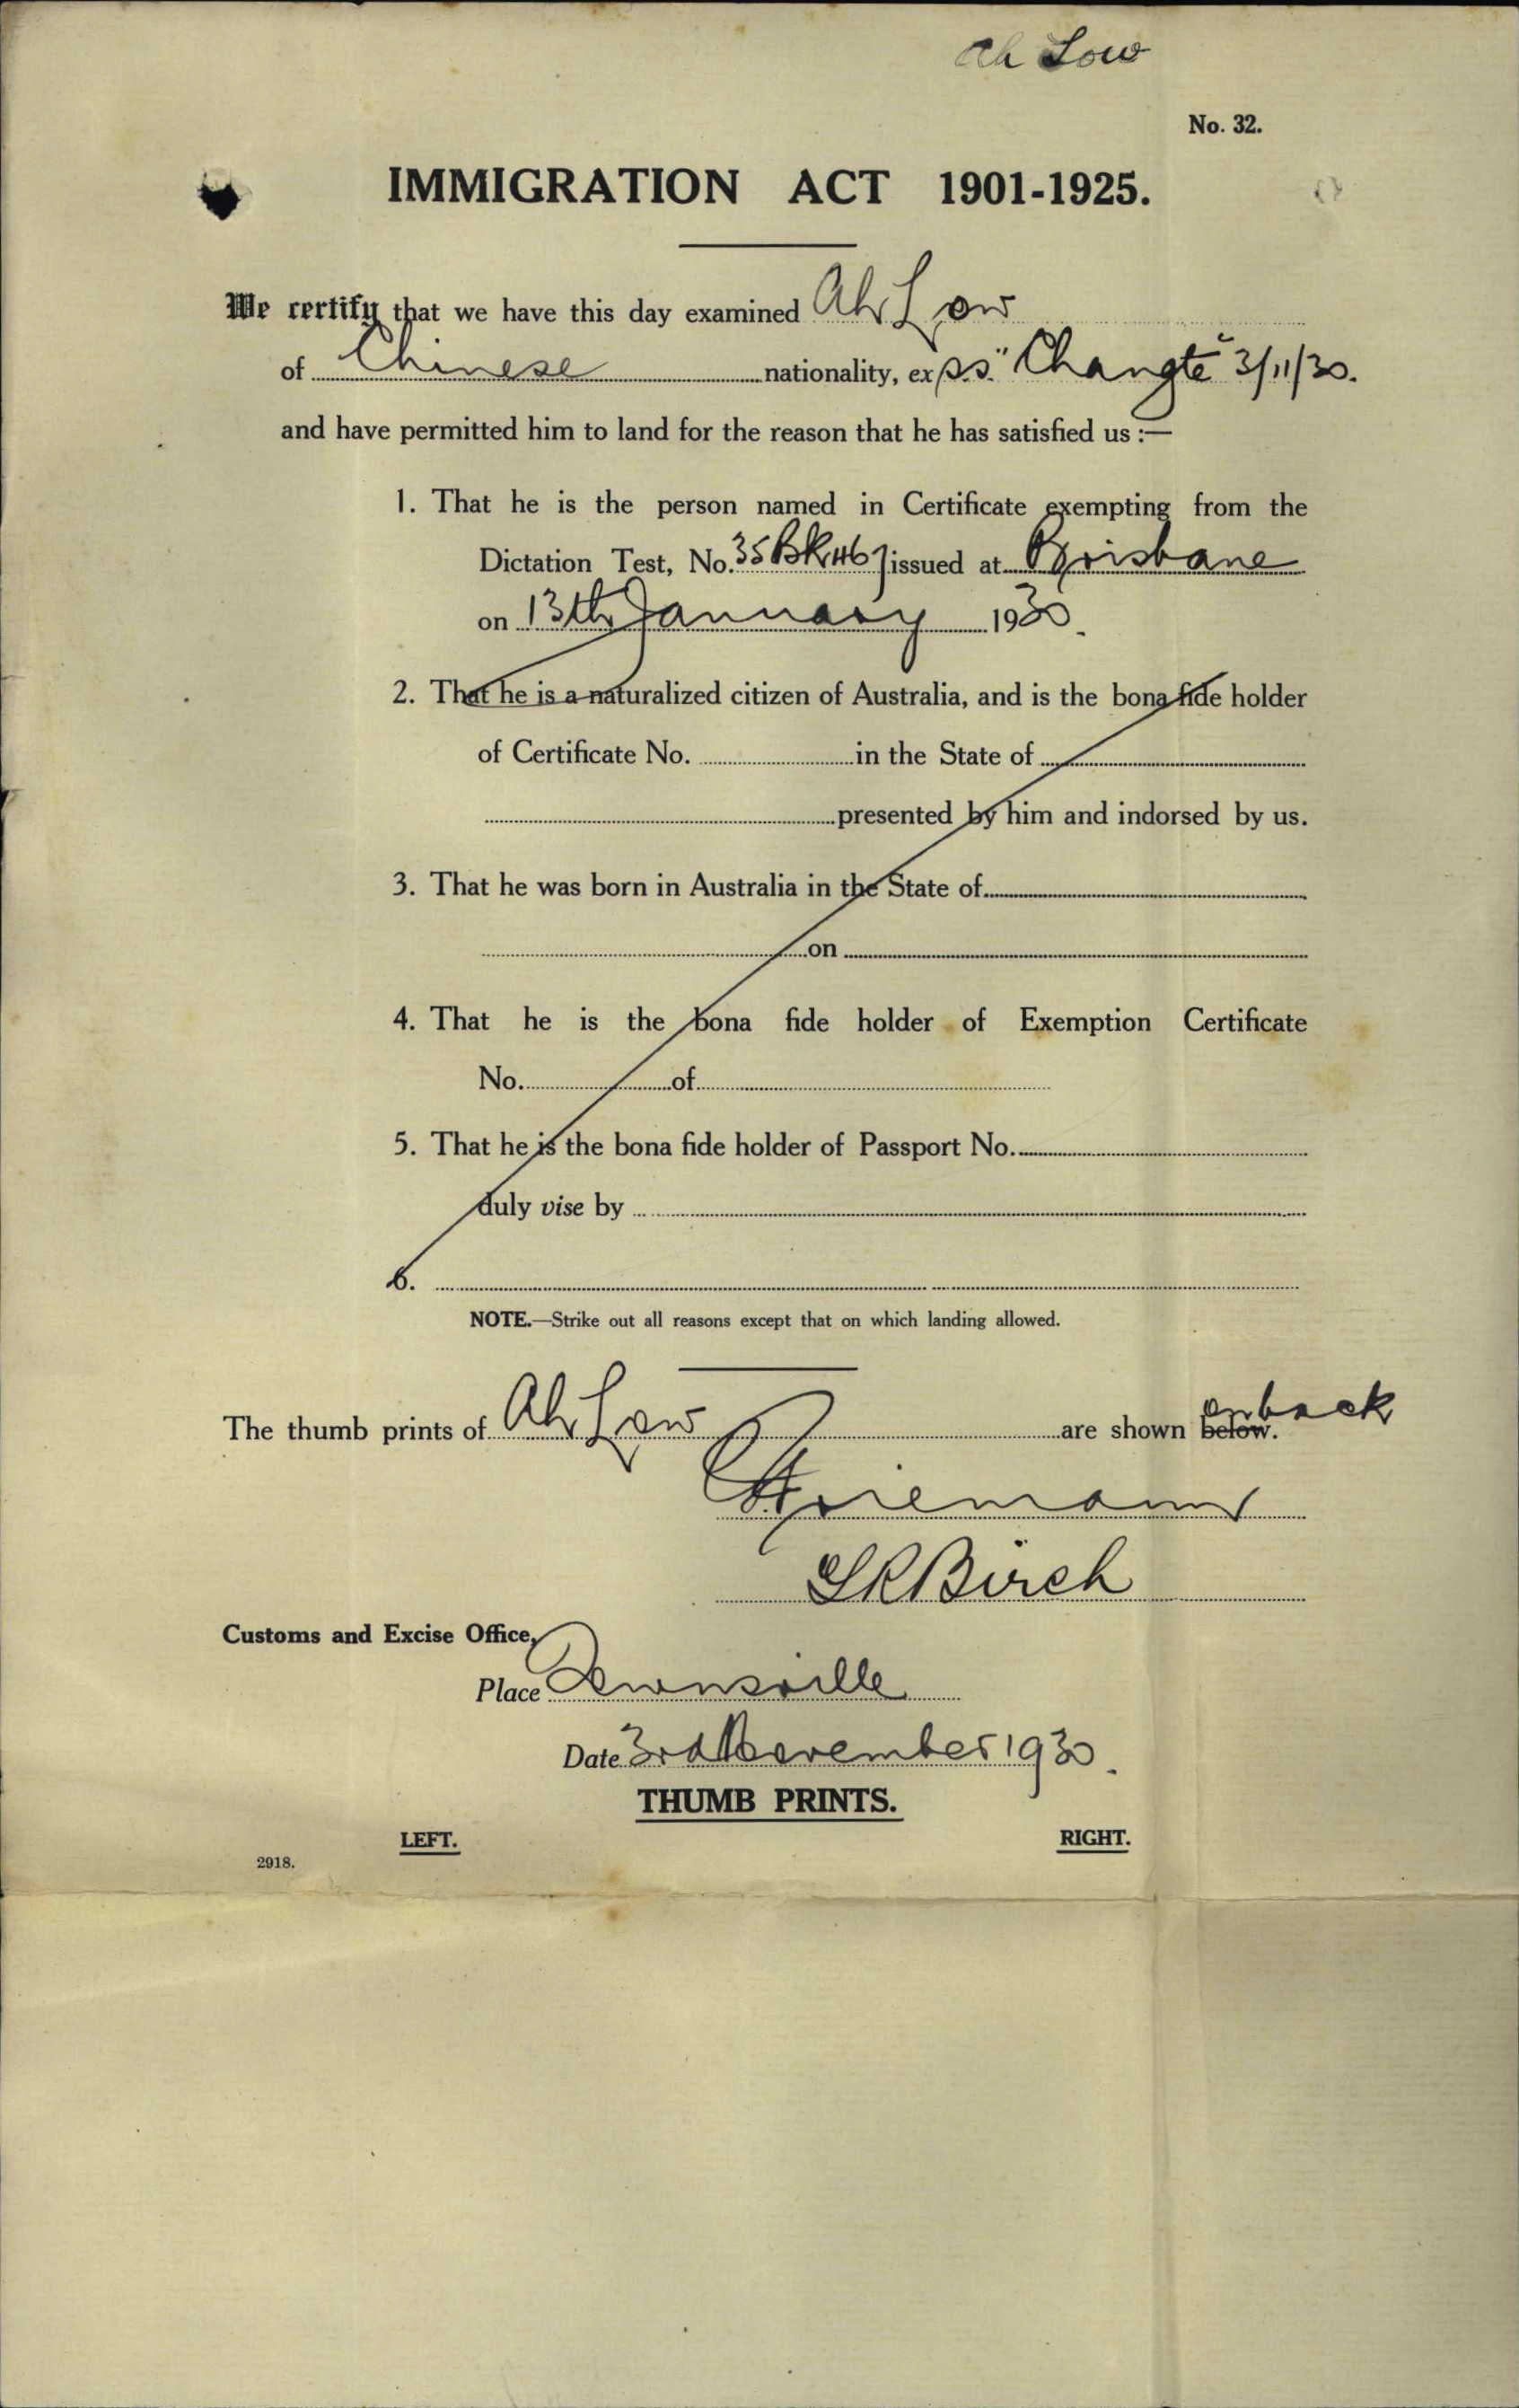 Ah Low
No. 32.
IMMIGRATION ACT 1901-1925.
We certify that we have this day examined Ah Low
of Chinese nationality, ex s.s. "Changte" 3/11/30.
and have permitted him to land for the reason that he has satisfied us :—
1. That he is the person named in Certificate exempting from the
Dictation Test, No. issued at Brisbane
on 13th January 1930.
2. That he is a naturalized citizen of Australia, and is the bona fide holder
of Certificate No. in the State of
presented by him and indorsed by us.
3. That he was born in Australia in the State of
on
4. That he is the bona fide holder of Exemption Certificate
No. of
5. That he is the bona fide holder of Passport No.
duly vise by
6.
NOTE.—Strike out all reasons except that on which landing allowed.
The thumb prints of Ah Low are shown below. on back
SRBirch
Customs and Excise Office,
Place Townsville
Date 3rd November 1930.
THUMB PRINTS.
LEFT. RIGHT.
2918.